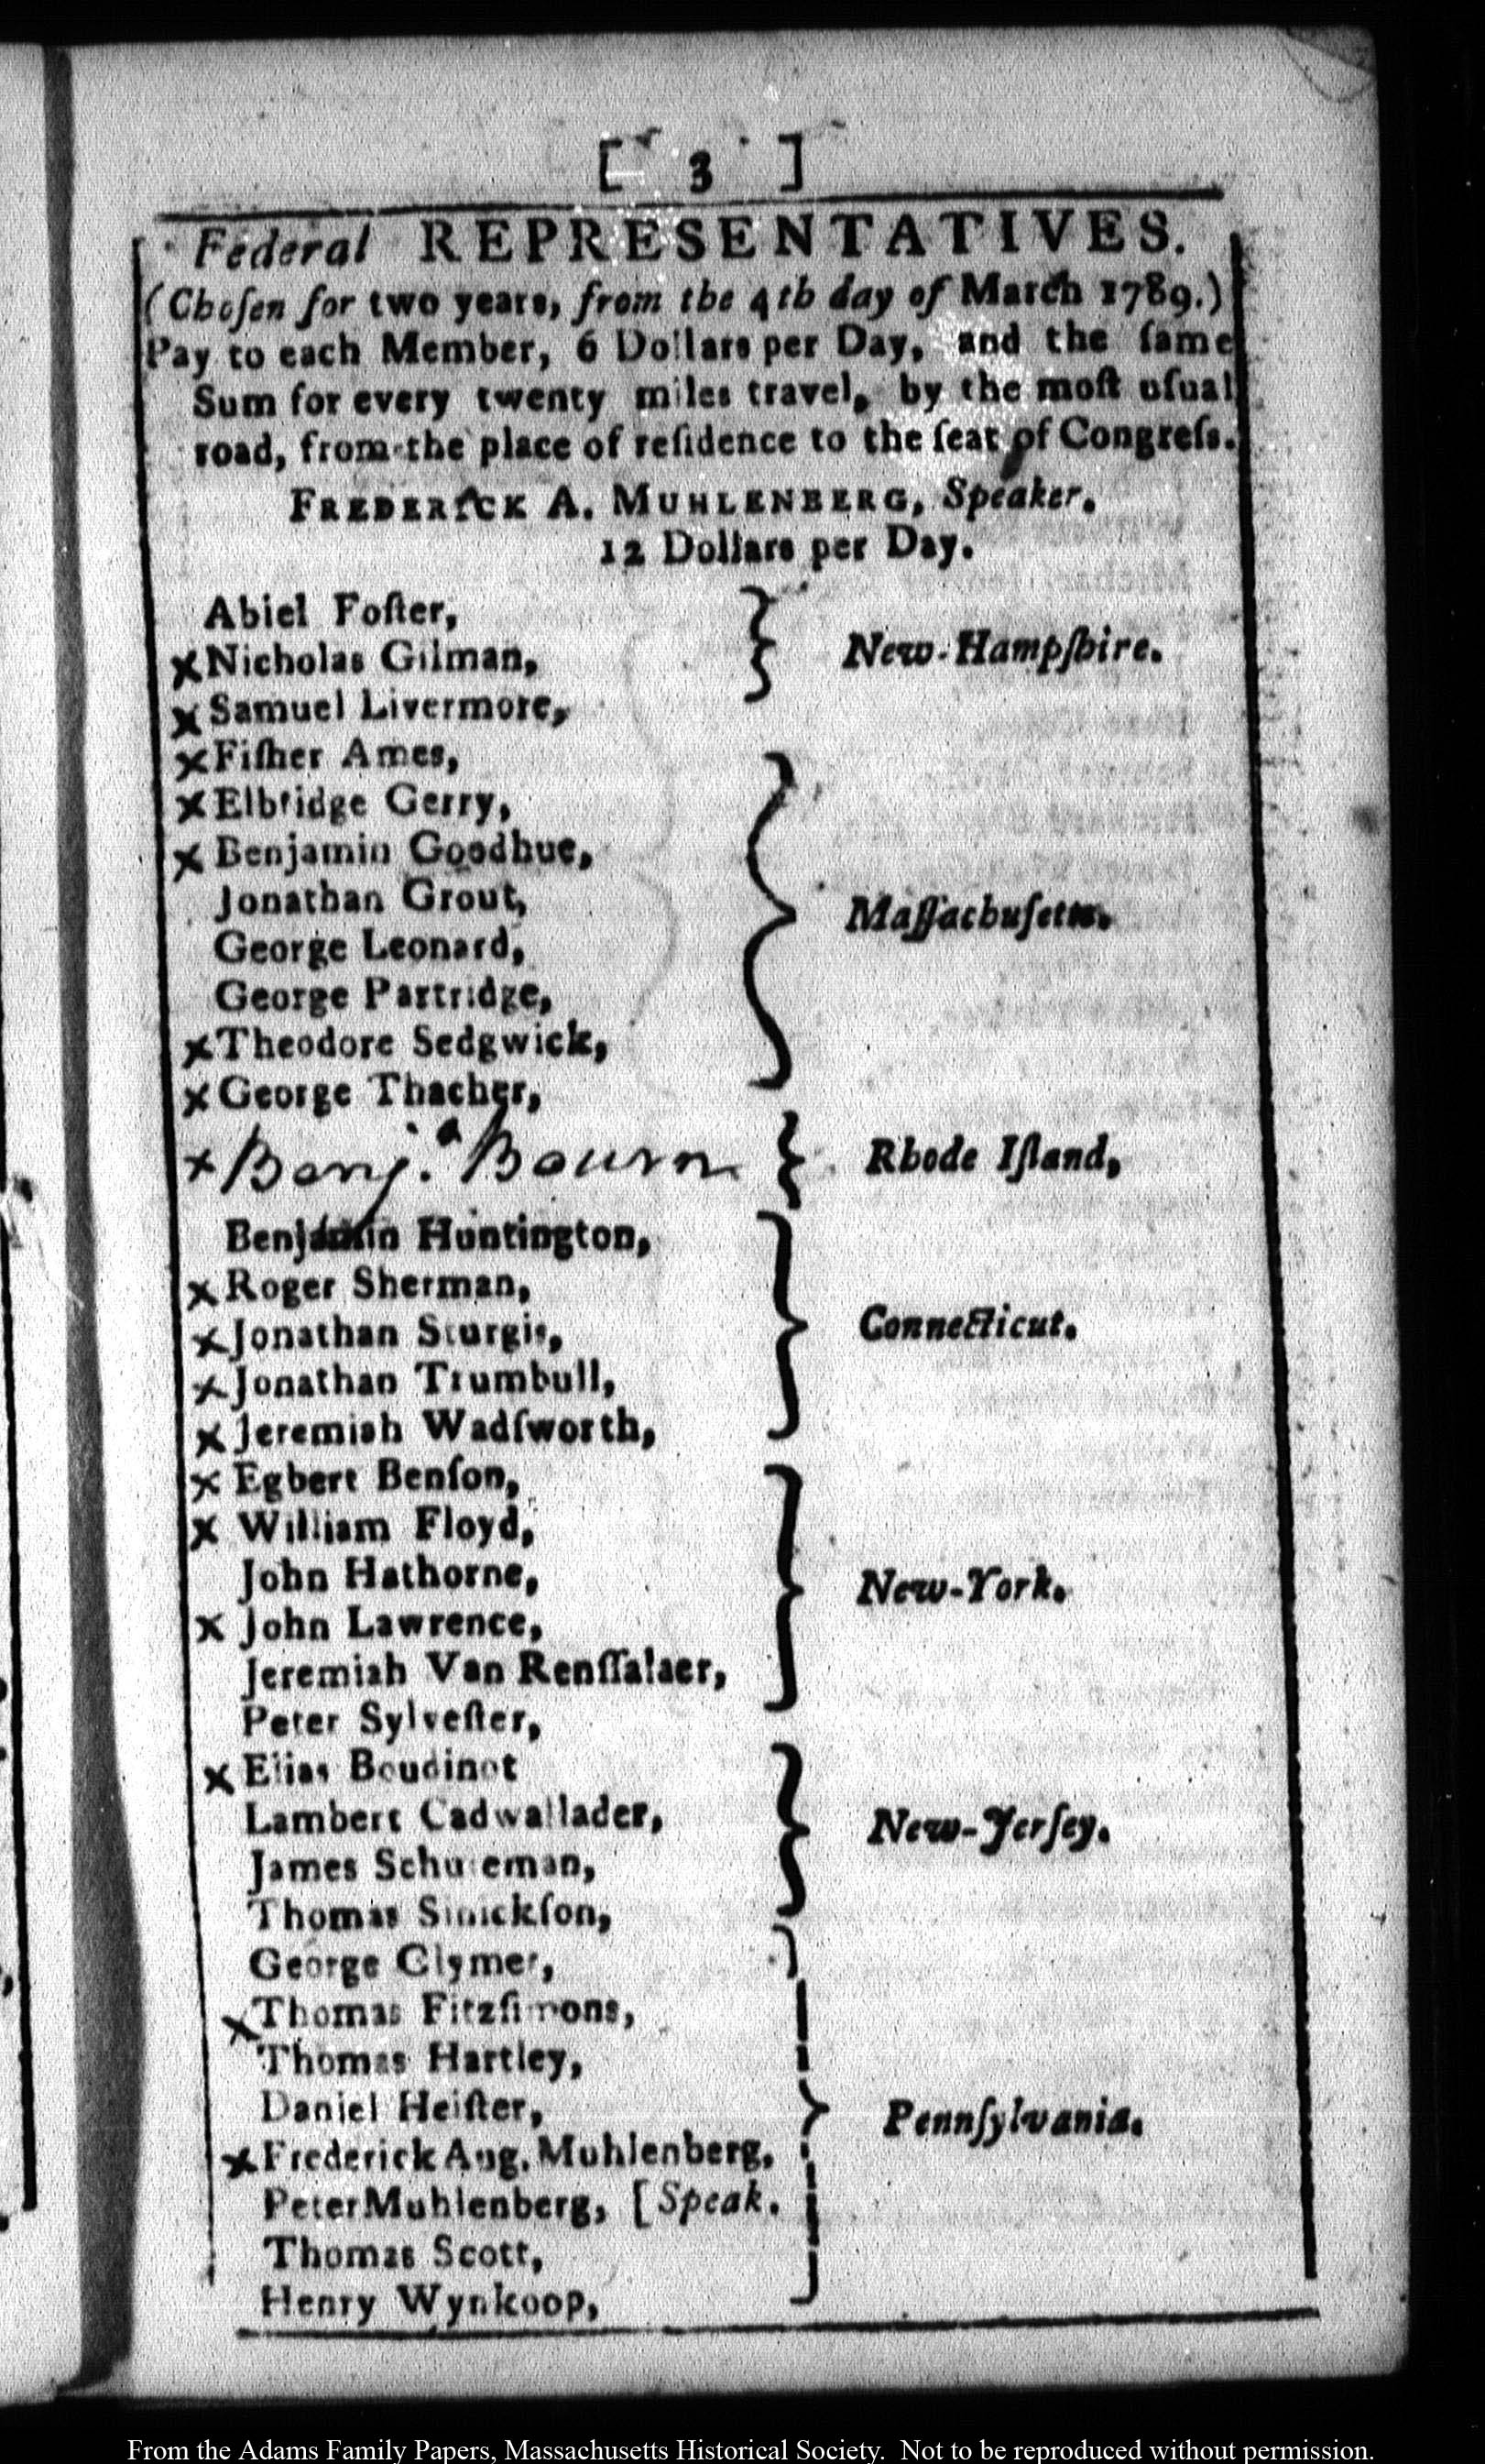 [ 3 ]
Federal REPRESENTATIVES.
(Choſen for two years, from the 4th day of March 1789.)
Pay to each Member, 6 Dollars per Day, and the ſame
Sum for every twenty miles travel, by the moſt uſual
road, from the place of reſidence to the ſeat of Congreſs.
FREDERICK A. MUHLENBERG, Speaker.
12 Dollars per Day.
Abiel Foſter,
x Nicholas Gilman, } New-Hampſhire.
x Samuel Livermore,
x Fiſher Ames,
x Elbridge Gerry,
x Benjamin Goodhue,
Jonathan Grout, } Maſſachuſetts.
George Leonard,
George Partridge,
x Theodore Sedgwick,
x George Thacher,
x Benj.ª Bourn } Rhode Iſland,
Benjamin Huntington,
x Roger Sherman,
x Jonathan Sturgis, } Connecticut.
x Jonathan Trumbull,
x Jeremiah Wadſworth,
x Egbert Benſon,
x William Floyd,
John Hathorne, } New-York.
x John Lawrence,
Jeremiah Van Renſſalaer,
Peter Sylveſter,
x Elias Boudinot
Lambert Cadwallader, } New-Jerſey.
James Schureman,
Thomas Sinickſon,
George Clymer,
x Thomas Fitzſimons,
Thomas Hartley,
Daniel Heiſter, } Pennſylvania.
x Frederick Aug. Muhlenberg,
Peter Muhlenberg, [Speak.
Thomas Scott,
Henry Wynkoop,
From the Adams Family Papers, Massachusetts Historical Society. Not to be reproduced without permission.